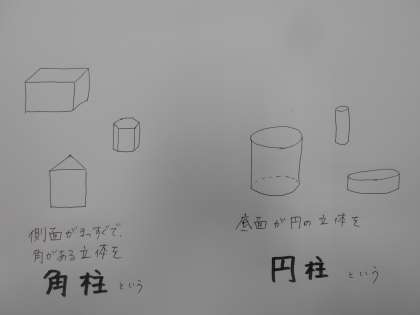 側面がまっすぐで、
角がある立体を
角柱 という
底面が円の立体を
円柱 という